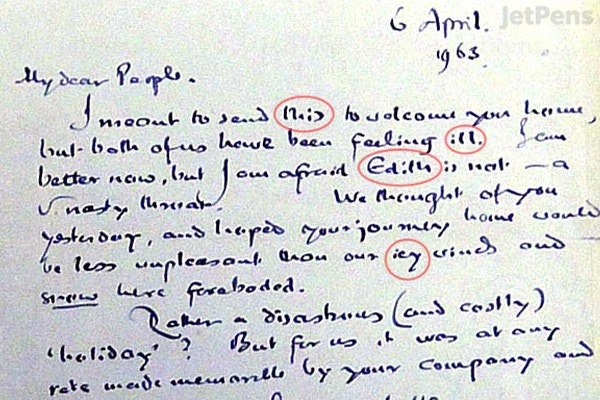 JetPens
6 April.
1963.
My dear People.
I meant to send this to welcome you home,
but both of us have been feeling ill. I am
better now, but I am afraid Edith is not — a
v. nasty throat. We thought of you
yesterday, and hoped your journey home would
be less unpleasant than our icy winds and
snow here foreboded.
Rather a disastrous (and costly)
'holiday'? But for us it was at any
rate made memorable by your company and